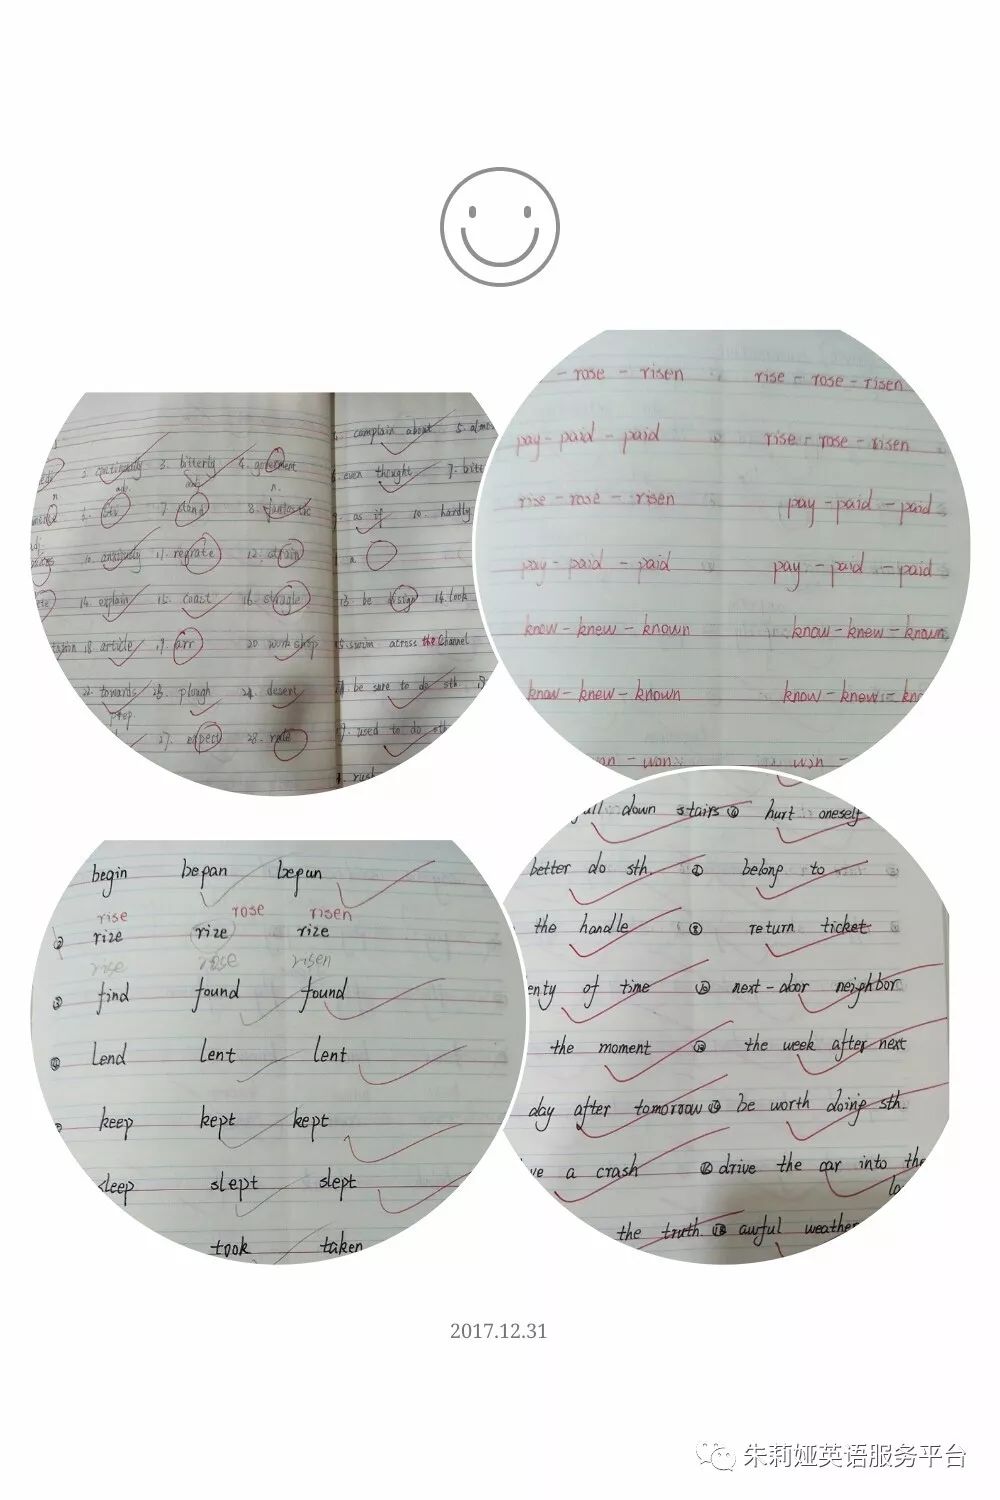 complain about 5.
2. continually 3. bitterly 4. goverment
adv.
even thought 7.
n
6. 7. stand 8.
as if 10. hardly
10. anxiously 11. reprate 12. atrain
n
14. explain 15. coast 16. stragle
13. be disign 14. look
18. article 19. arr 20. work shop
15. swim across the Channel
22. towards 23. plough 24. desert
be sure to do sth.
prep
27. expect 28. rate
used to do sth
- rose - risen rise - rose - risen
pay - paid - paid rise - rose - risen
rise - rose - risen pay - paid - paid
pay - paid - paid pay - paid - paid
know - knew - known know - knew - known
know - knew - known know - knew - kn
- won win -
begin began begun
rise rose risen
② rize rize rize
rise rose risen
③ find found found
④ lend lent lent
keep kept kept
sleep slept slept
took taken
down stairs ④ hurt oneself
better do sth. belong to
the handle ⑧ return ticket
enty of time ⑩ next-door neighbor
the moment ⑫ the week after next
day after tomorrow ⑭ be worth doing sth.
ve a crash ⑯ drive the car into the
la
the truth. ⑱ awful weather
2017.12.31
朱莉娅英语服务平台